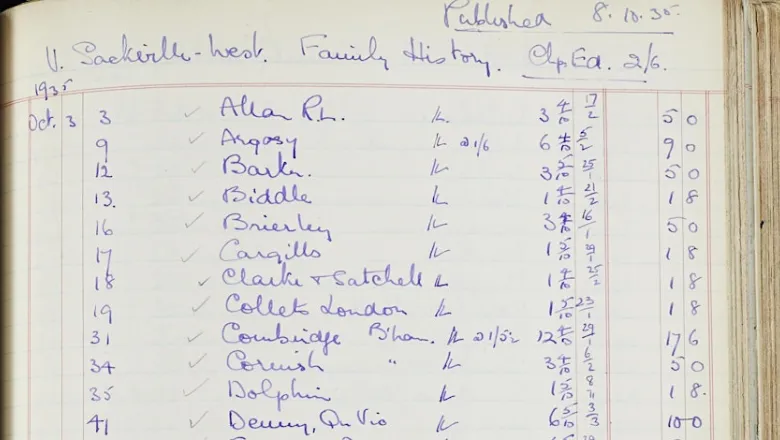 Published 8.10.35.
V. Sackville-West. Family History. Chp Ed. 2/6.
1935
Oct. 3 3 ✓ Allan R.L. 3 4/10 17/2 5 0
9 ✓ Argosy @ 1/6 6 4/10 5/2 9 0
12 ✓ Barker. 3 5/10 25/1 5 0
13. ✓ Biddle 1 4/10 21/2 1 8
16 ✓ Brierley 3 4/10 16/1 5 0
17 ✓ Cargills 1 5/10 1 8
18 ✓ Clarke & Satchell 1 4/10 25/2 1 8
19 ✓ Collets London 1 5/10 23/1 1 8
31 ✓ Combridge B'ham. @ 1/5½ 12 4/10 29/1 17 6
34 ✓ Cornish " 3 4/10 6/2 5 0
35 ✓ Dolphin 1 5/10 1 8.
41 ✓ Denny, Qn Vic 6 5/10 3/3 10 0